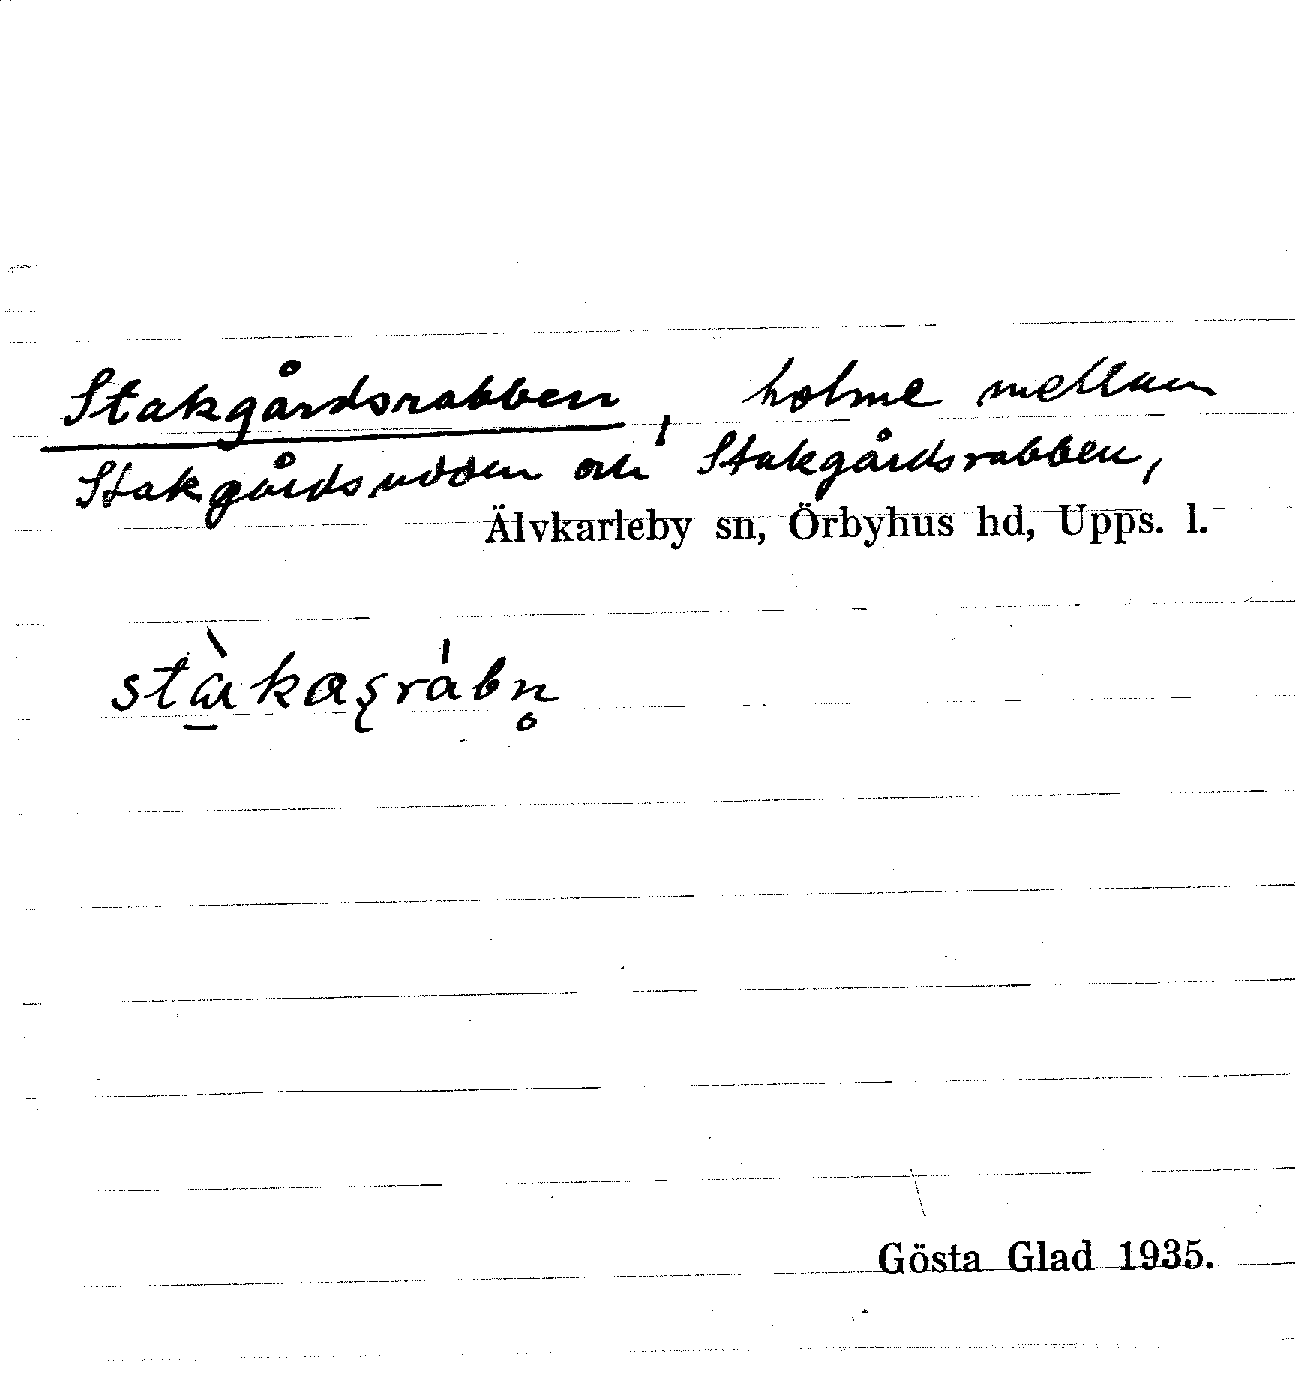 Stakgårdsrabben, holme mellan
Stakgårdsudden och Stakgårdsrabben,
Älvkarleby sn, Örbyhus hd, Upps. l.
stɑ̱̀kaʂrábn̥
Gösta Glad 1935.